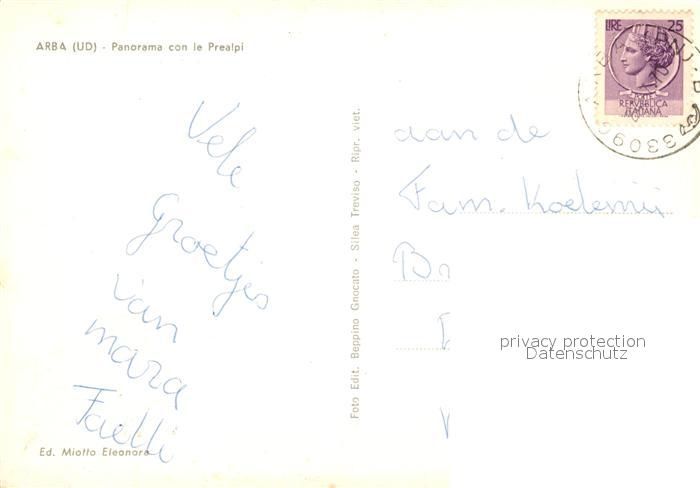 ARBA (UD) - Panorama con le Prealpi
LIRE 25
REPVBBLICA
ITALIANA
33090
Vele
Groetjes
van
mara
Faelli
Ed. Miotto Eleonora
Foto Edit. Beppino Gnocato - Silea Treviso - Ripr. viet.
aan de
Fam. Koelemij
privacy protection
Datenschutz